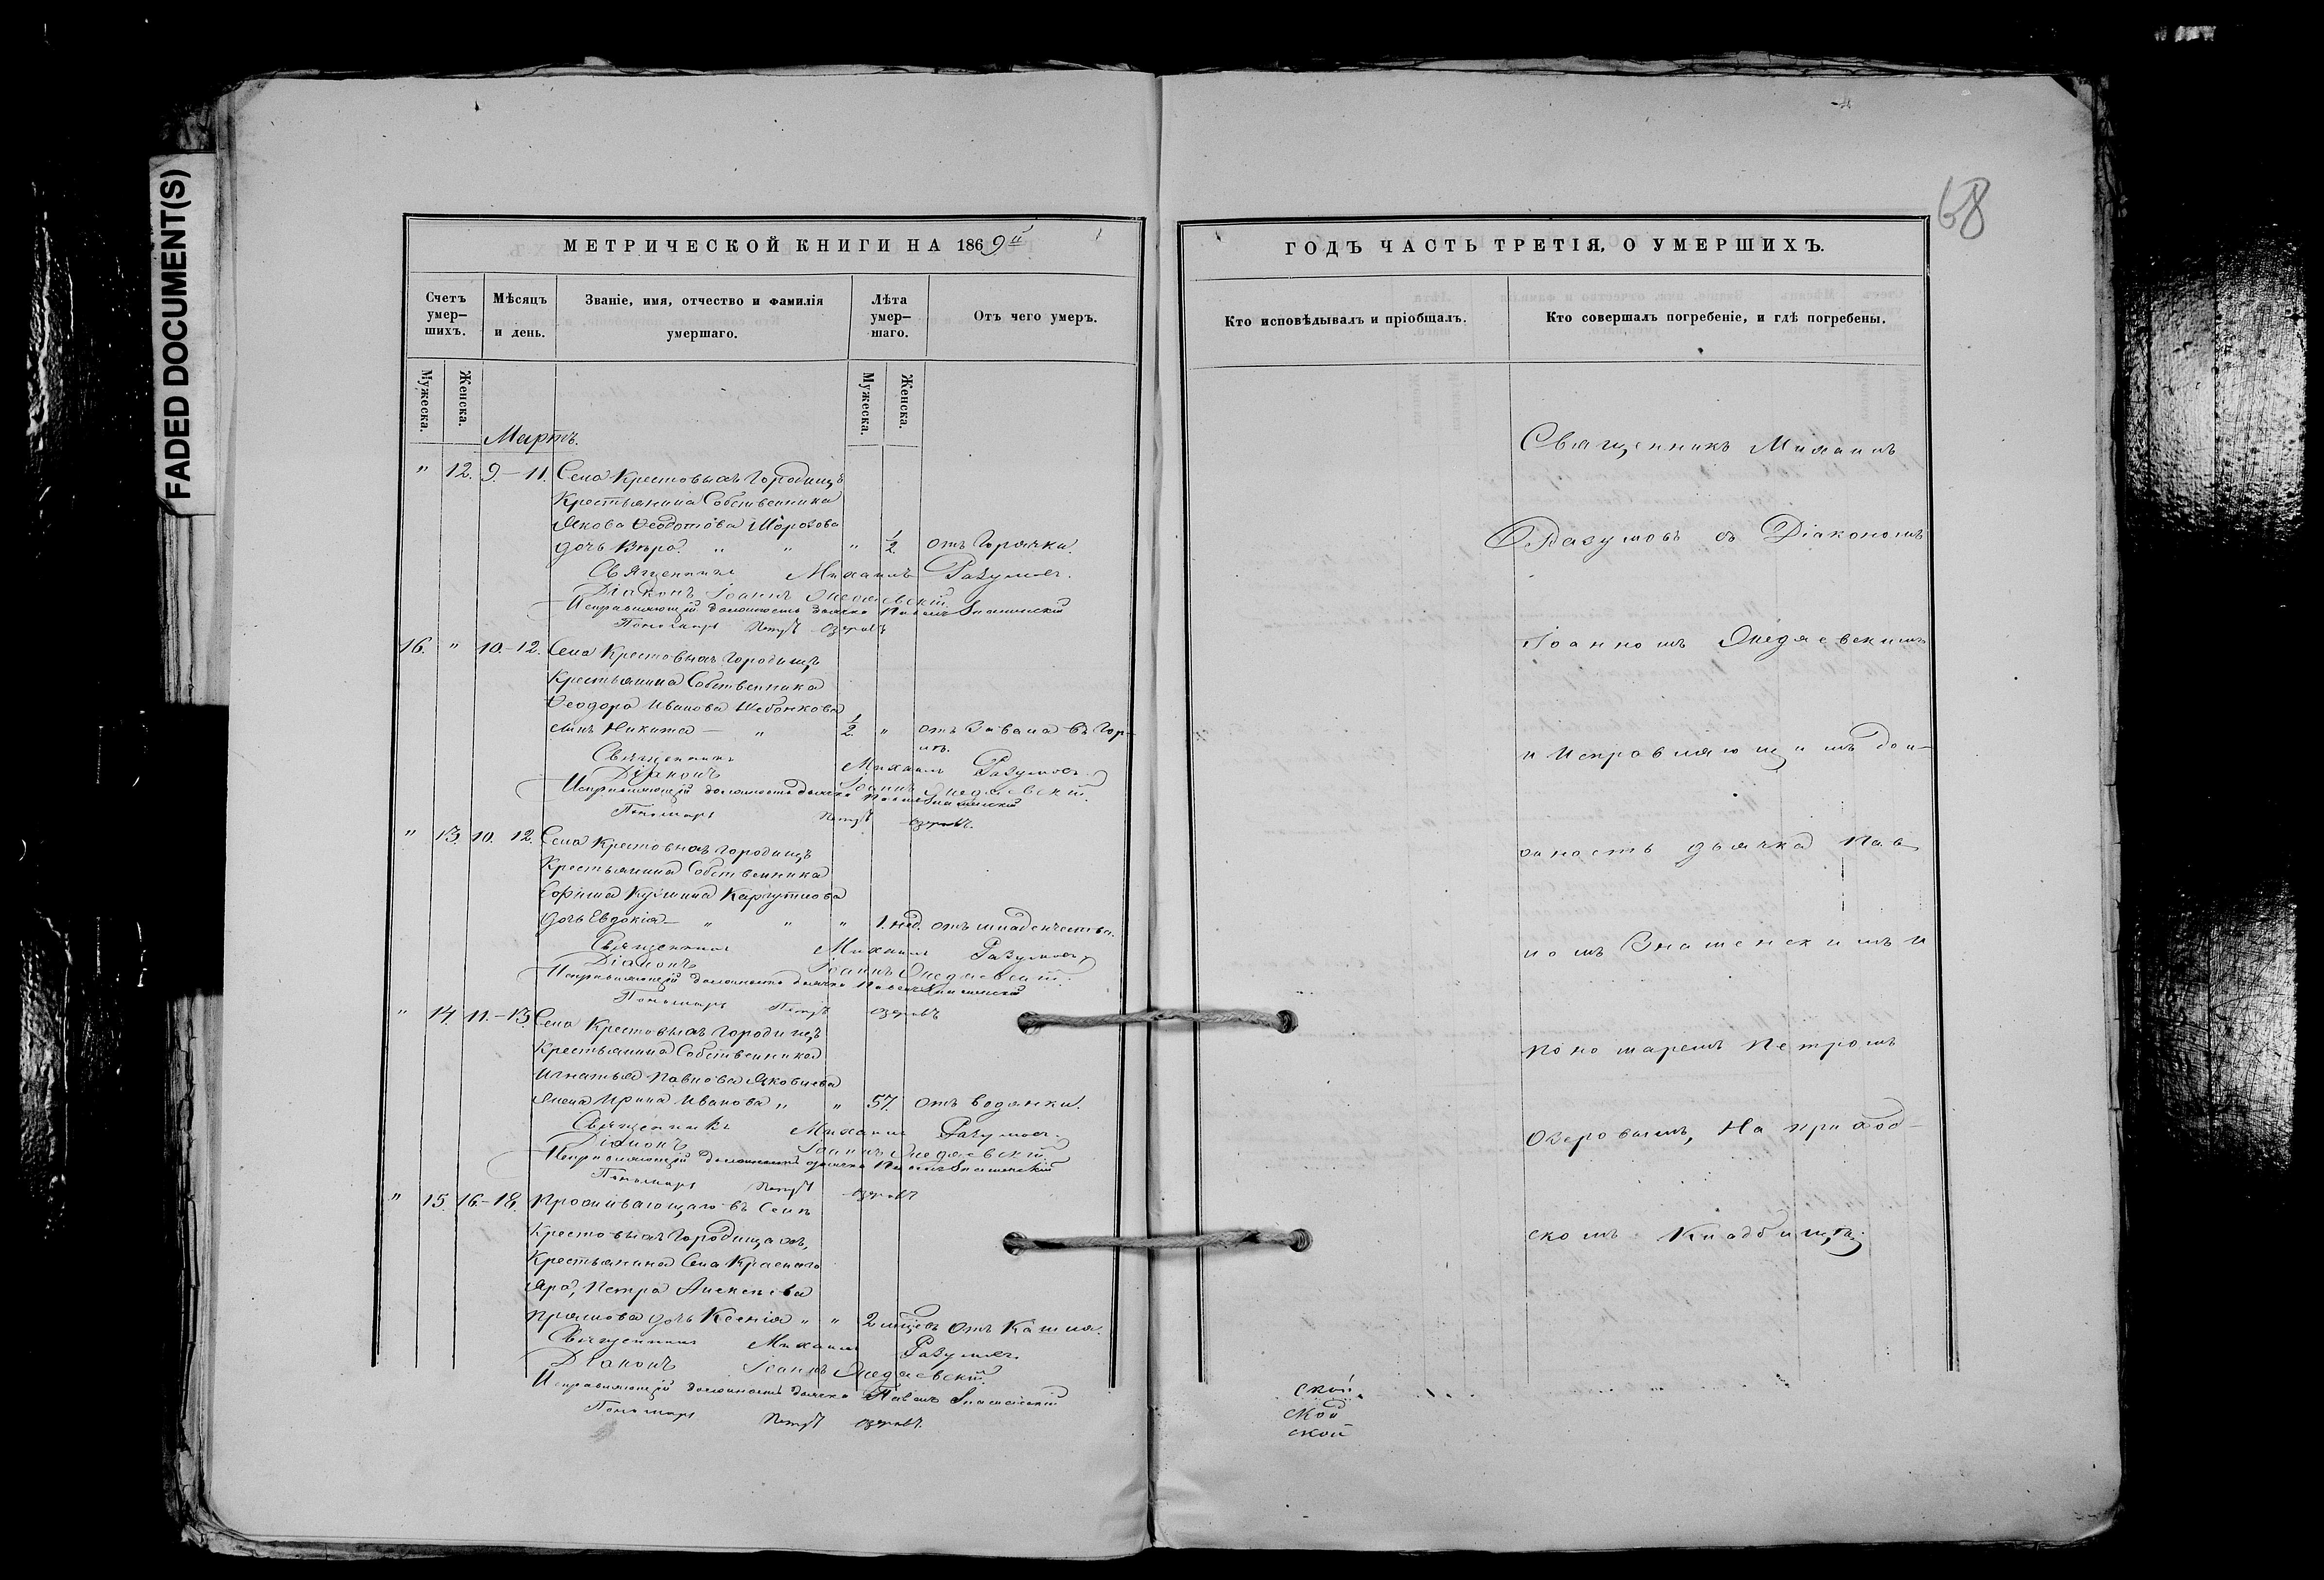 FADED DOCUMENT(S)
68
МЕТРИЧЕСКОЙ КНИГИ НА 1869й
Счетъ умер-
шихъ.
Мѣсяцъ
и день.
Званіе, имя, отчество и фамилія
умершаго.
Лѣта
умер-
шаго.
Отъ чего умеръ.
Мужеска.
Женска.
Мужеска.
Женска.
Мартъ.
" 12. 9-11. Села Крестовыхъ Городищъ
Крестьянина Собственника
Якова Ѳеодотова Морозова
дочь Вѣра " " " 1/2 отъ Горячки.
Священникъ Михаилъ Разумовъ.
Діаконъ Іоаннъ
Исправляющій должность дьячка Павелъ Знаменскій
Пономарь Петръ Озеровъ
16. " 10.-12. Села Крестовыхъ Городищъ
Крестьянина Собственника
Ѳеодора Иванова Шебонкова
сынъ Никита - " 1/2. " отъ Завала въ Гор-
лѣ.
Священникъ Михаилъ Разумовъ
Діаконъ Іоаннъ
Исправляющій должность дьячка Павелъ Знаменскій
Пономарь Петръ Озеровъ.
" 13. 10. 12. Села Крестовыхъ Городищъ
Крестьянина Собственника
Ефима Кузмина
дочь Евдокія - " " " 1. нед. отъ младенчества.
Священникъ Михаилъ Разумовъ
Діаконъ Іоаннъ
Исправляющій должность дьячка Павелъ Знаменскій
Пономарь Петръ Озеровъ
" 14. 11.-13. Села Крестовыхъ Городищъ
Крестьянина Собственника
Игнатья Павлова Яковлева
жена Ирина Иванова " " 57. отъ водянки.
Священникъ Михаилъ Разумовъ.
Діаконъ Іоаннъ
Исправляющій должность дьячка Павелъ Знаменскій
Пономарь Петръ Озеровъ
" 15. 16-18. Проживающаго въ Селѣ
Крестовыхъ Городищахъ,
Крестьянина Села Краснаго
Яра, Петра Алексѣева
дочь Ксенія " " 2 мѣсц. Отъ Кашля.
Священникъ Михаилъ Разумовъ.
Діаконъ Іоаннъ
Исправляющій должность дьячка Павелъ Знаменскій
Пономарь Петръ Озеровъ.
ГОДЪ ЧАСТЬ ТРЕТІЯ, О УМЕРШИХЪ.
Кто исповѣдывалъ и пріобщалъ.
Кто совершалъ погребеніе, и гдѣ погребены.
Священникъ Михаилъ
Разумовъ съ Діакономъ
Іоанномъ
и Исправляющимъ дол-
жность дьячка Пав
ломъ Знаменскимъ и
пономаремъ Петромъ
Озеровымъ, На приход-
скомъ Кладбищѣ.
ской
ской
ской